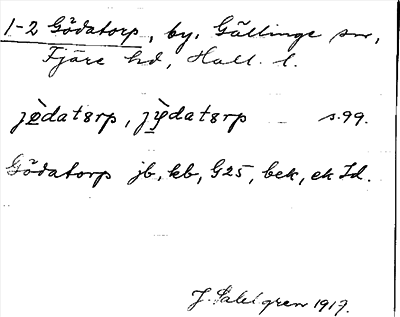 1-2 Gödatorp, by, Gällinge sn,
Fjäre hd, Hall. l.
jö̀datɜrp, jỳdatɜrp s. 99.
Gödatorp jb, kb, G25, bek, ek Id.
J. Sahlgren 1917.